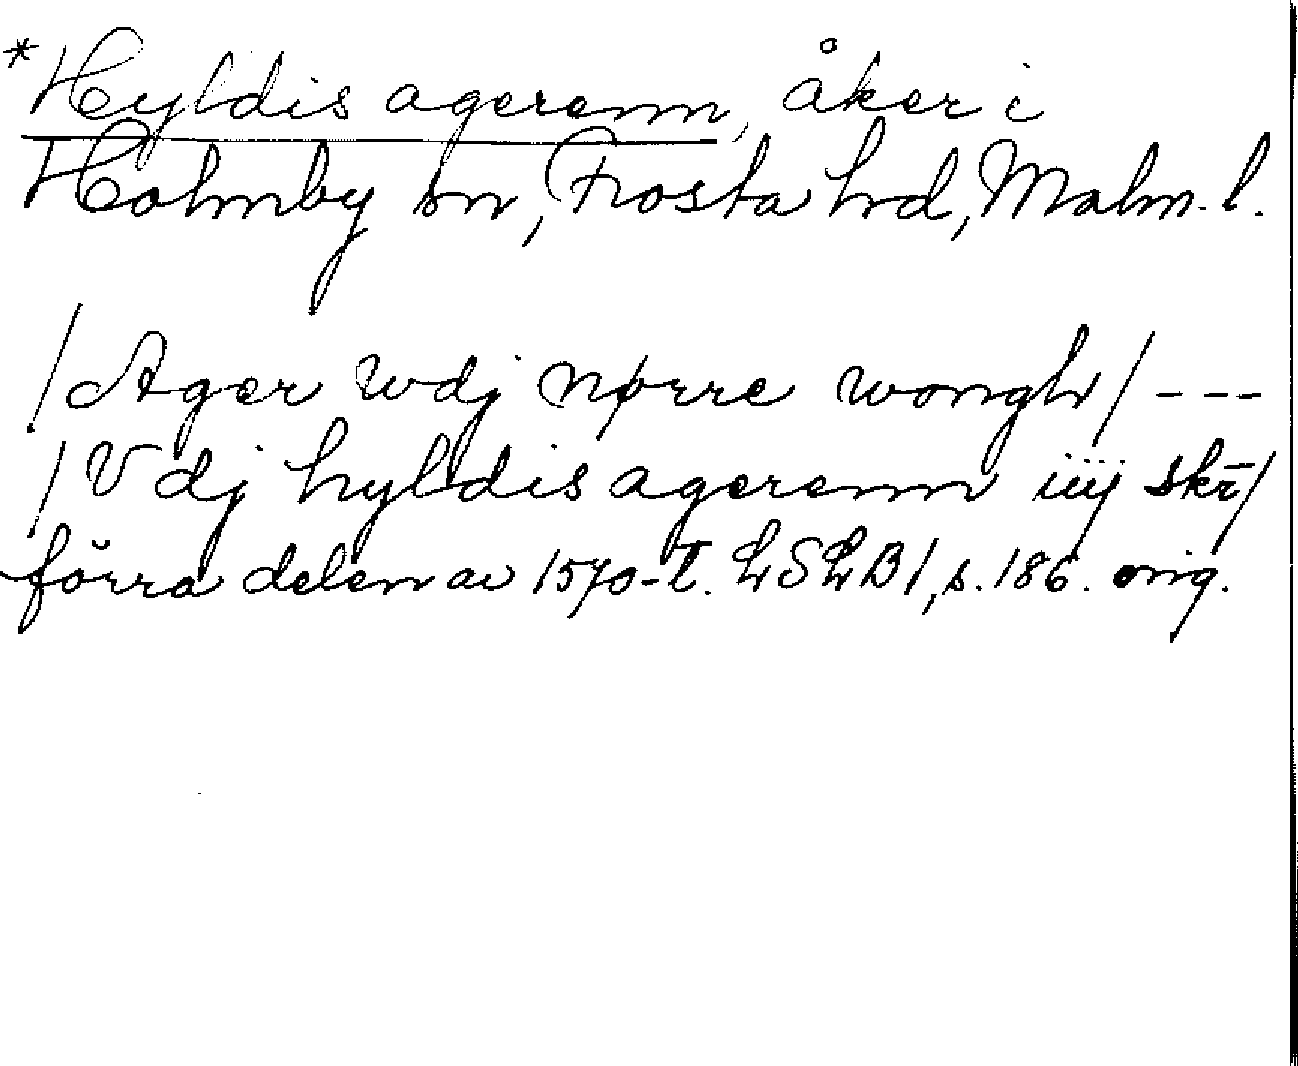 *Hyldis agerenn, åker i
Holmby sn, Frosta hrd, Malm. l.
/Ager wdj nørre wongh/ ---
/Vdj hyldis agerenn iiij skr̄/
förra delen av 1570-t. LSLB1, s. 186. orig.